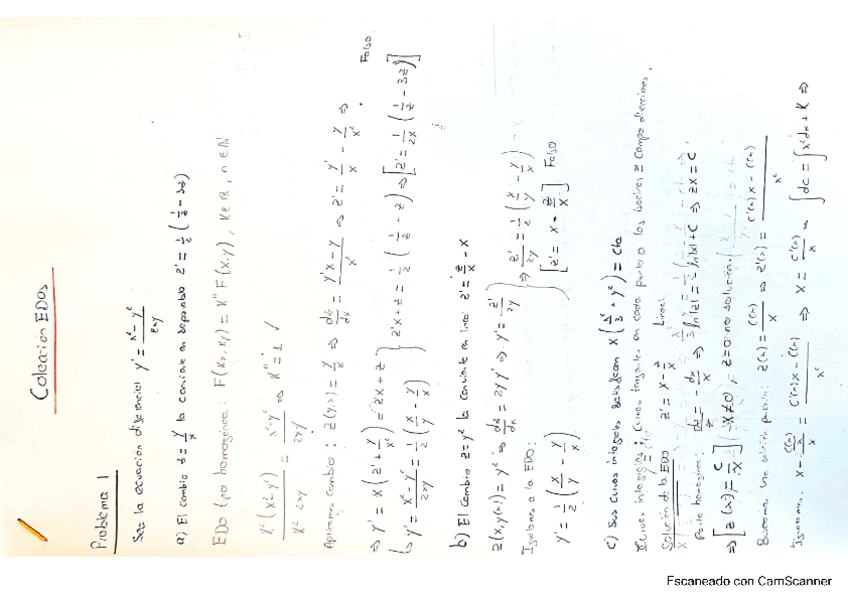 Colección EDOs
Problema 1
Sea la ecuación diferencial y' = (x² - y²)/(2xy)
a) El cambio z = y/x la convierte en separable z' = 1/2 (1/z - 3z)
EDO tipo homogénea: F(kx, ky) = kⁿ F(x,y), k ∈ ℝ, n ∈ ℕ
k² (x² - y²) / k² 2xy = (x² - y²) / 2xy ⇒
Aplicamos cambio: z(y,x) = y/x ⇒ dz/dx = (y'x - y)/x² ⇒ z' = y'/x - y/x² ⇒
⇒ y' = x (z' + y/x²) = z'x + z
y' = (x² - y²)/2xy = 1/2 (x/y - y/x)
z'x + z = 1/2 (1/z - z) ⇒ [z' = 1/2x (1/z - 3z)] Falso
b) El cambio z = y² la convierte en lineal z' = z/x - x
z(x, y(x)) = y² ⇒ dz/dx = 2yy' ⇒ y' = z'/2y
Igualamos a la EDO:
y' = 1/2 (x/y - y/x)
⇒ z'/2y = 1/2 (x/y - y/x)
[z' = x - z/x] Falso
c) Sus curvas integrales satisfacen x (x²/3 + y²) = cte
Curvas integrales: Curvas tangentes en cada punto a las = campo direcciones.
Solución de la EDO z' = x - z/x Lineal
Parte homogénea: dz/z = - dx/x ⇒ ln|z| = - ln|x| + C ⇒ zx = C
⇒ [z(x) = C/x] x ≠ 0, z = 0: no solución.
Buscamos una solución particular: z(x) = C(x)/x ⇒ z'(x) = (C'(x)x - C(x))/x²
Igualamos: x - = (C'(x)x - C(x))/x² ⇒ x = C'(x)/x ⇒ ∫dc = ∫x²dx + K ⇒
Escaneado con CamScanner